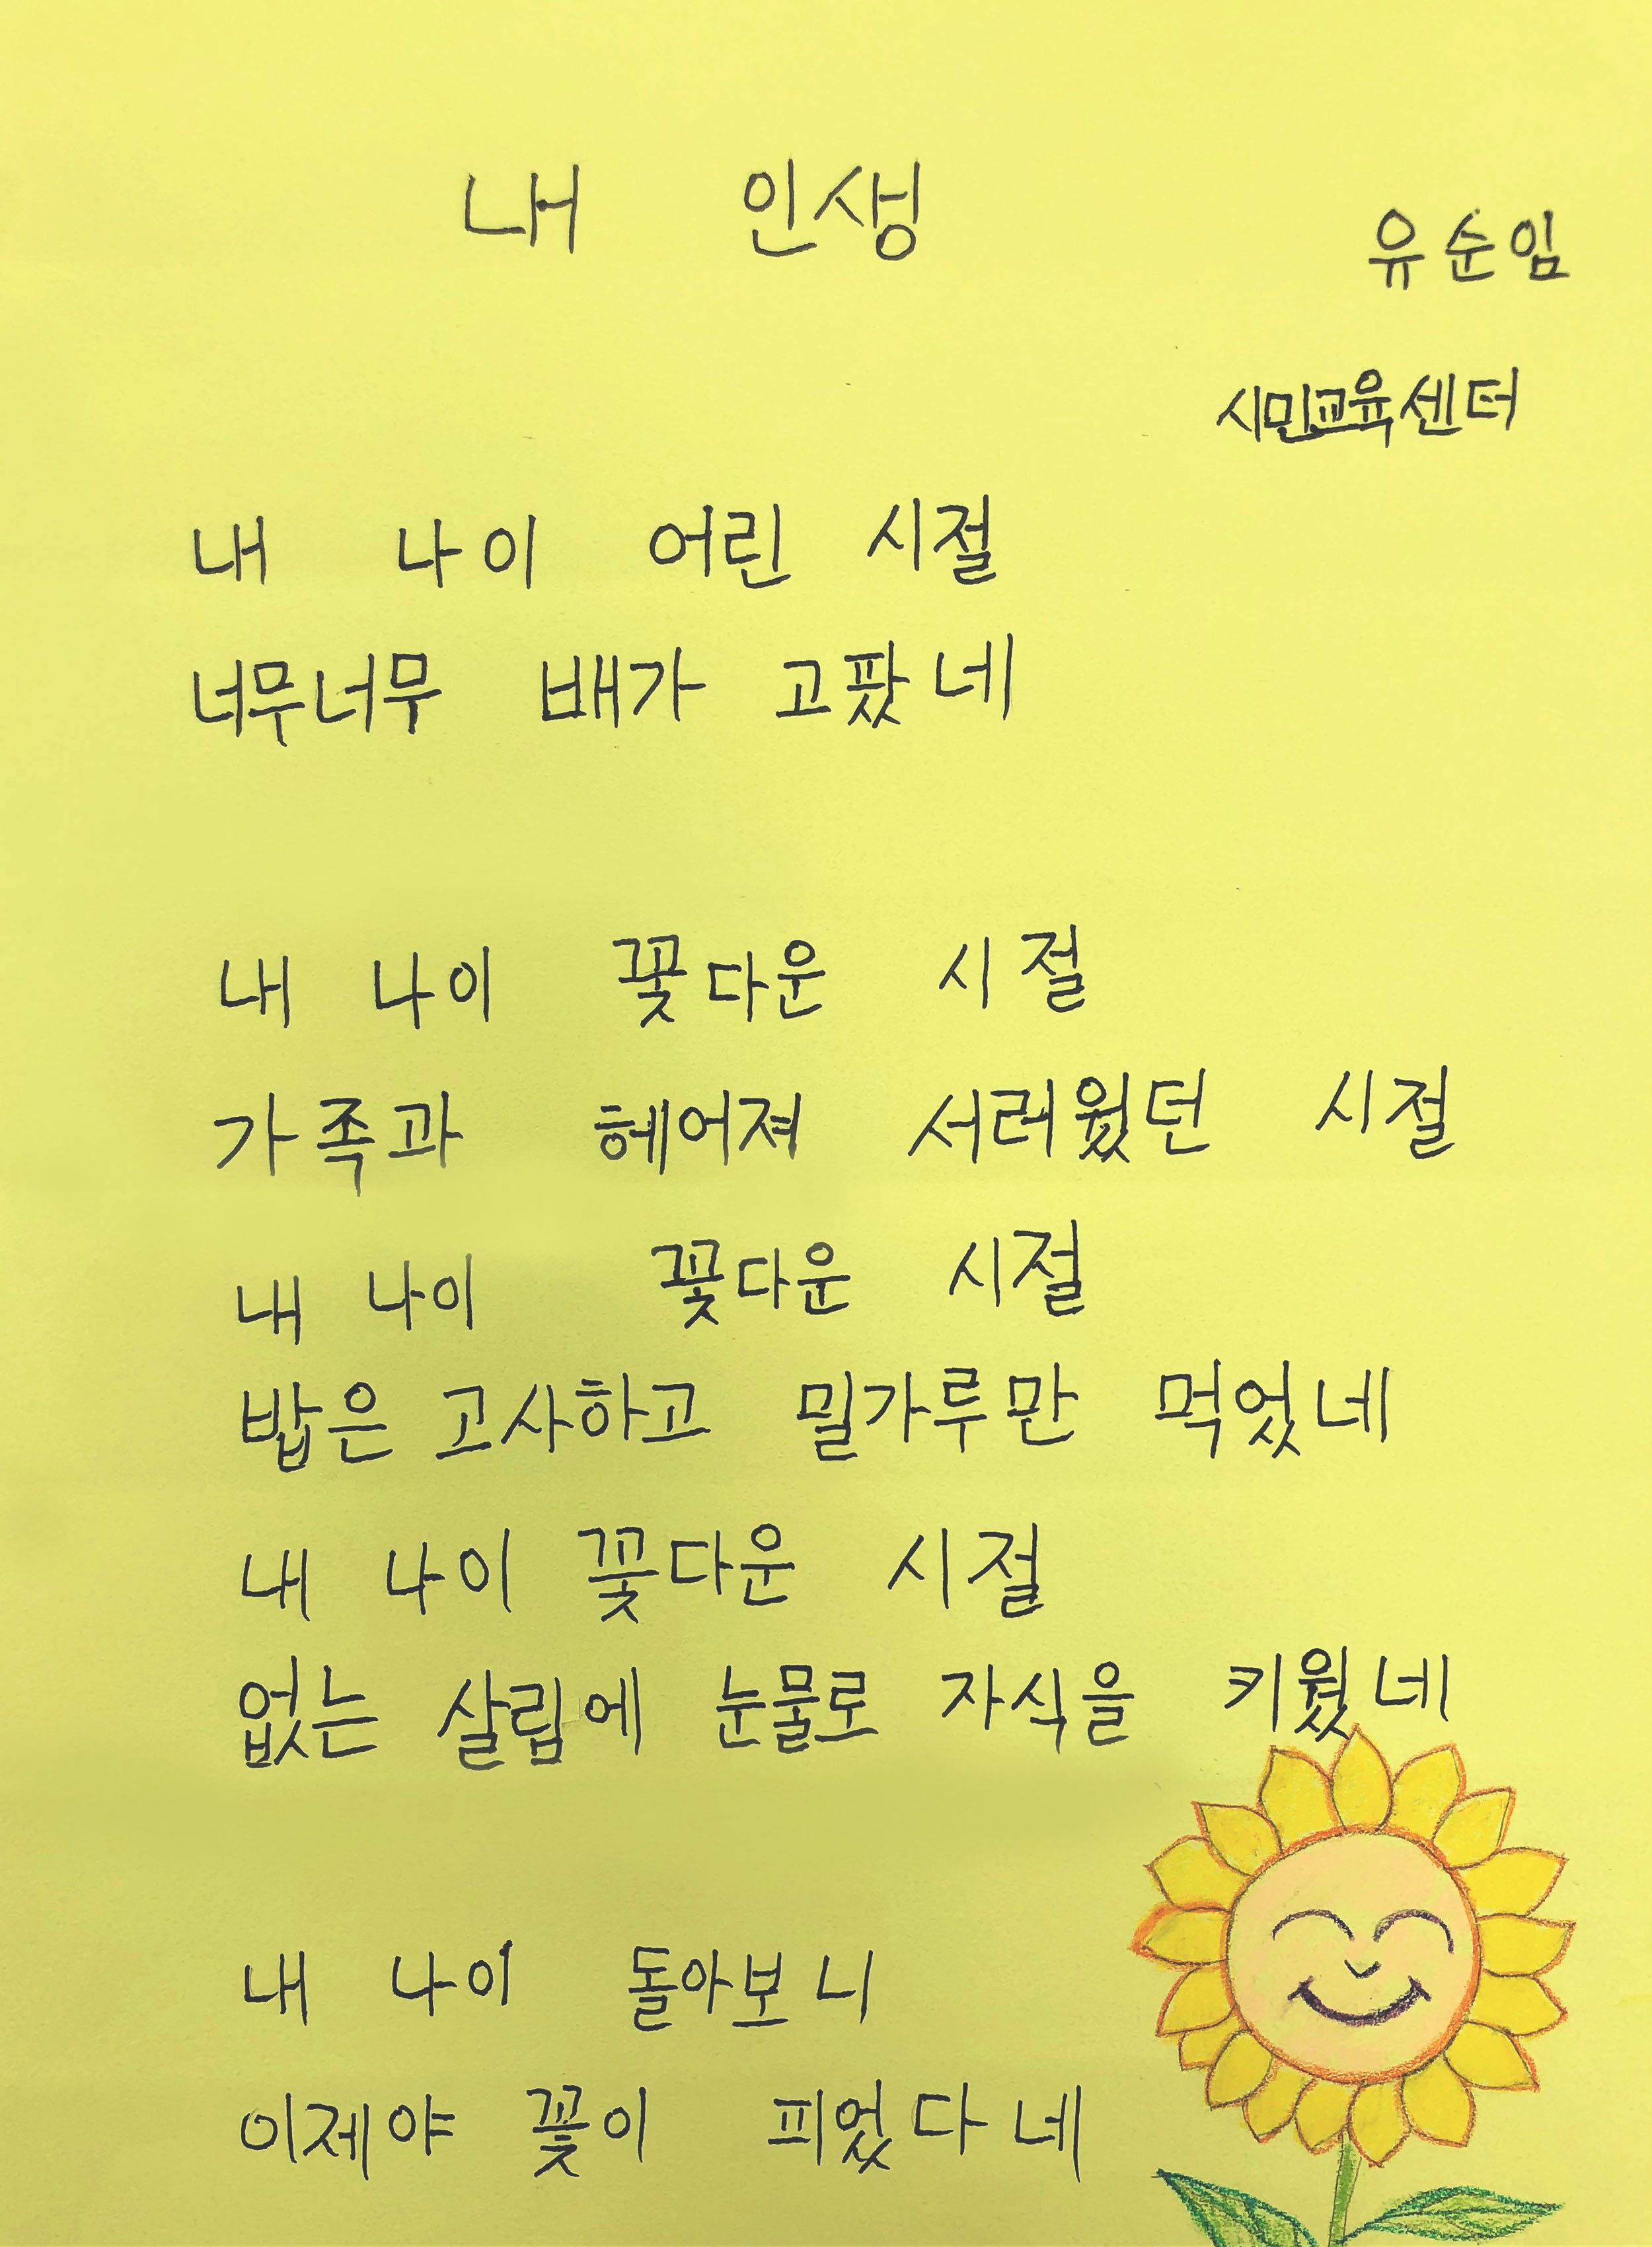 내 인생
유순임
시민교육센터
내 나이 어린 시절
너무너무 배가 고팠네
내 나이 꽃다운 시절
가족과 헤어져 서러웠던 시절
내 나이 꽃다운 시절
밥은 고사하고 밀가루만 먹었네
내 나이 꽃다운 시절
없는 살림에 눈물로 자식을 키웠네
내 나이 돌아보니
이제야 꽃이 피었다네